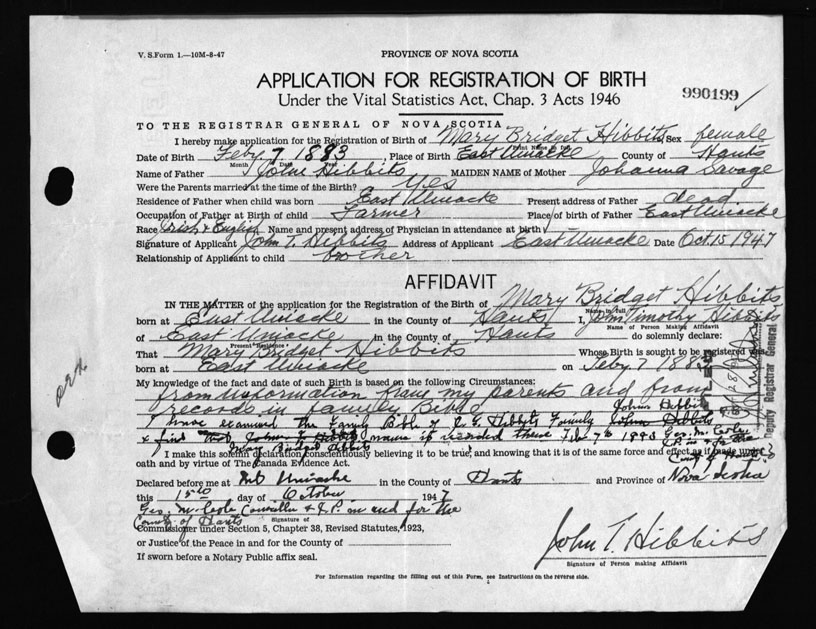 V. S. Form 1.—10M-8-47
PROVINCE OF NOVA SCOTIA
APPLICATION FOR REGISTRATION OF BIRTH
Under the Vital Statistics Act, Chap. 3 Acts 1946
990199
TO THE REGISTRAR GENERAL OF NOVA SCOTIA
I hereby make application for the Registration of Birth of Mary Bridget Hibbits Sex female
Print Name in full
Date of Birth Feby 7 1883, Place of Birth East Uniacke County of Hants
Month Date Year
Name of Father John Hibbits MAIDEN NAME of Mother Johanna Savage
Were the Parents married at the time of the Birth? Yes
Residence of Father when child was born East Uniacke Present address of Father dead
Occupation of Father at Birth of child Farmer Place of birth of Father East Uniacke
Race Irish & English Name and present address of Physician in attendance at birth
Signature of Applicant John T. Hibbits Address of Applicant East Uniacke Date Oct. 15 1947
Relationship of Applicant to child brother
AFFIDAVIT
IN THE MATTER of the application for the Registration of the Birth of Mary Bridget Hibbits
Name in full
born at East Uniacke in the County of Hants I, John Timothy Hibbits
Name of Person Making Affidavit
of East Uniacke in the County of Hants do solemnly declare:
Present Residence
That Mary Bridget Hibbits Whose Birth is sought to be registered was
born at East Uniacke on Feby 7 1883
My knowledge of the fact and date of such Birth is based on the following Circumstances:
from information from my parents and from
records in family Bible
John Hibbits
I have examined the Family Bible of J. G. Hibbits Family John Hibbits
& find that John T. Hibbits name is recorded there Feb 7th 1883 Geo. M. Cole
Mary Bridget Hibbits
I make this solemn declaration conscientiously believing it to be true, and knowing that it is of the same force and effect as if made under
County of Hants
oath and by virtue of The Canada Evidence Act.
Declared before me at Mt Uniacke in the County of Hants and Province of Nova Scotia
this 15th day of October 1947
Geo. M. Cole Councillor & J.P. in and for the
County of Hants
Signature of
Commissioner under Section 5, Chapter 38, Revised Statutes, 1923,
or Justice of the Peace in and for the County of
If sworn before a Notary Public affix seal.
John T. Hibbits
Signature of Person making Affidavit
For Information regarding the filling out of this Form, see Instructions on the reverse side.
Deputy Registrar General